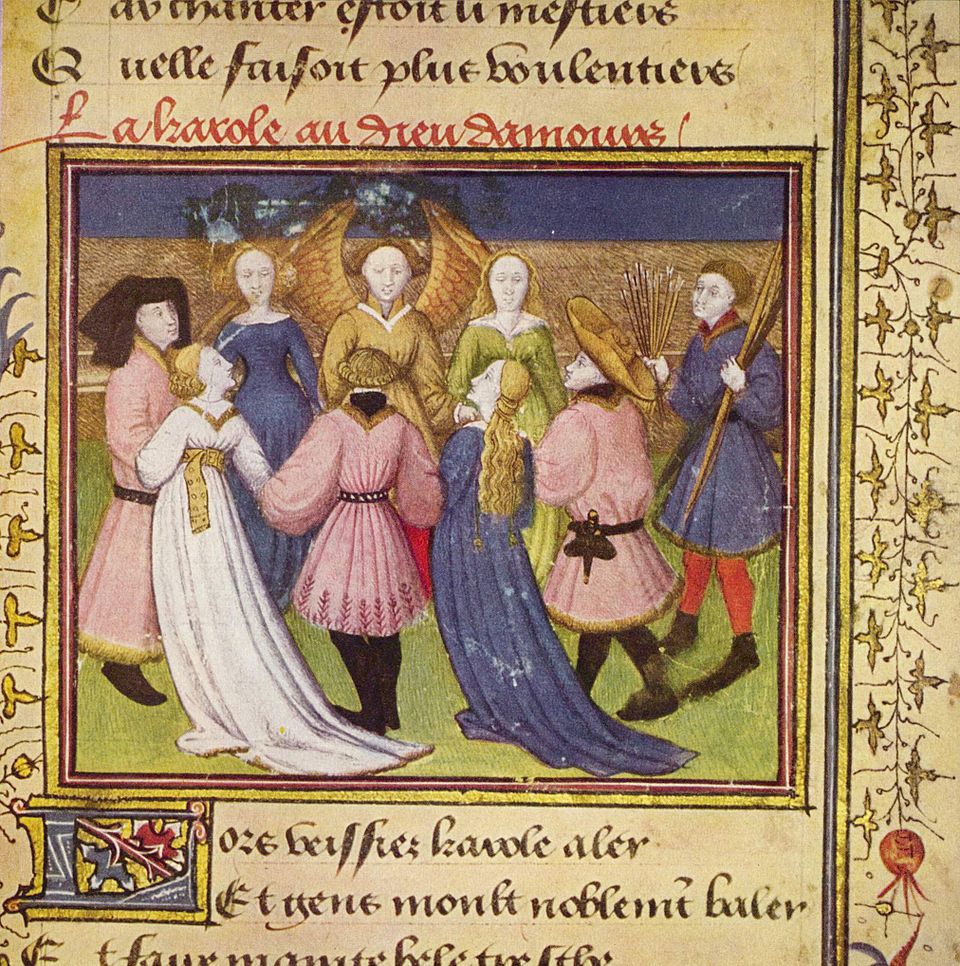 au chanter estoit li mestiers
Quelle faisoit plus voulentiers
La karole au dieu damours
Lors veissiez karole aler
Et gens moult noblemt̃ baler
Et faire mainte bele tresche